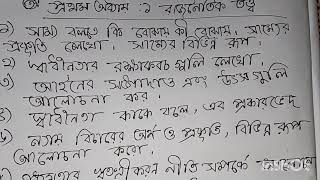 প্রথম অধ্যায় : ১ রাজনৈতিক তত্ত্ব
১) সাম্য বলতে কি বোঝায় কী বোঝায়, সাম্যের
প্রকৃতি লেখো। সাম্যের বিভিন্ন রূপ।
২) স্বাধীনতার রক্ষাকবচ গুলি লেখো।
৩) আইনের সংজ্ঞা দাও এবং উৎস গুলি
আলোচনা কর।
স্বাধীনতা কাকে বলে, এর প্রকারভেদ
৫) ন্যায় বিচারের অর্থ ও প্রকৃতি, বিভিন্ন রূপ
আলোচনা করো।
স্বতন্ত্রীকরণ নীতি সম্পর্কে